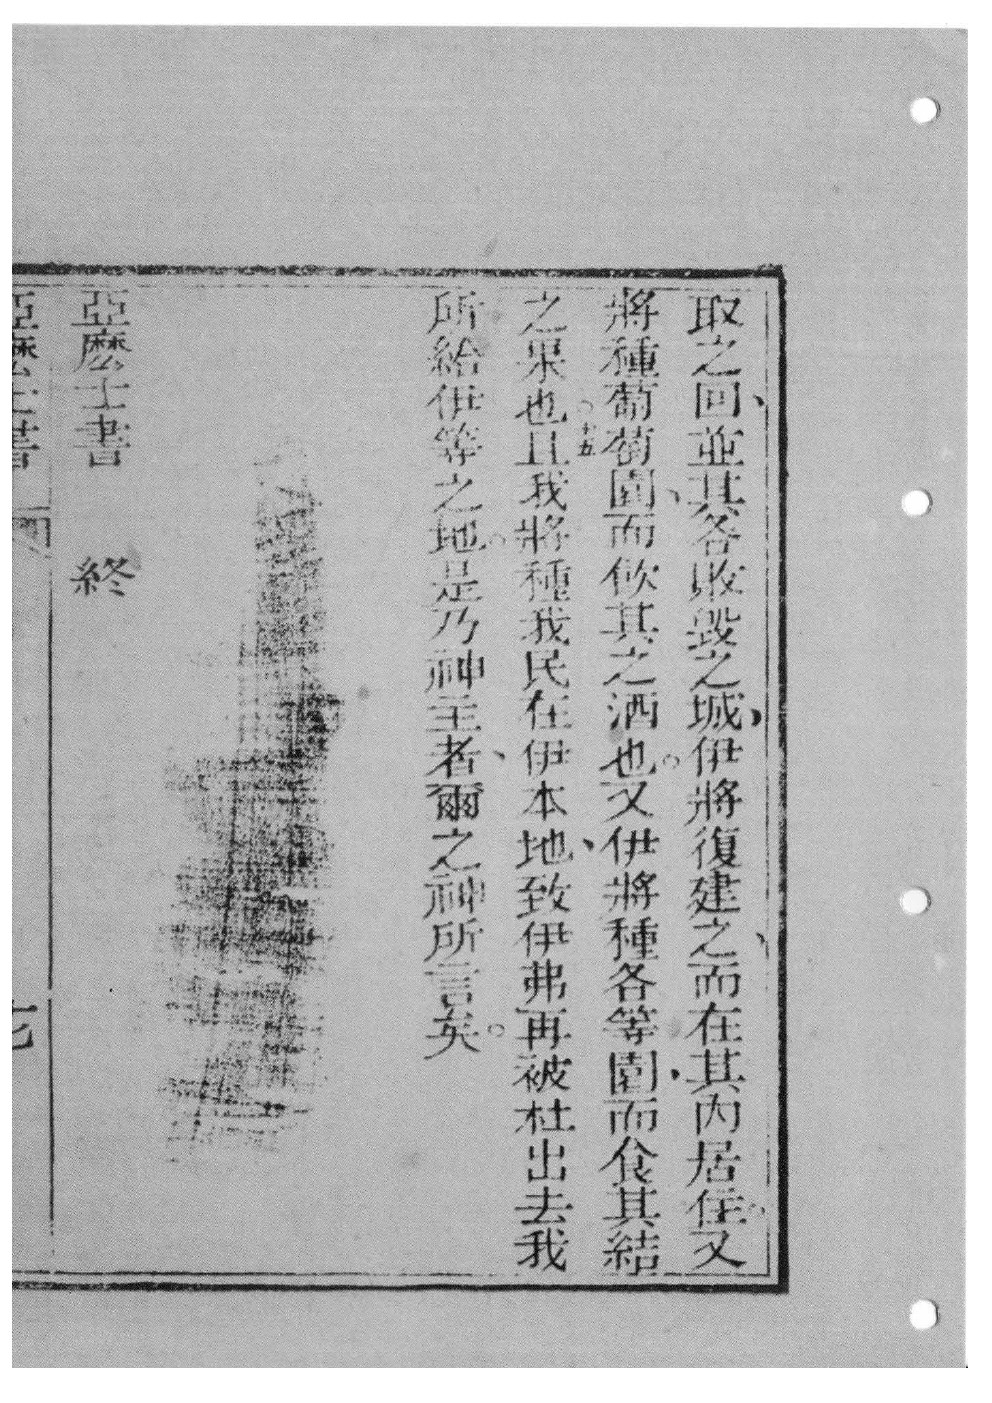 取之回、並其各敗毀之城、伊將復建之、而在其內居住。又
將種葡萄園、而飲其之酒也。又伊將種各等園、而食其結
之果也。十五且我將種我民在伊本地、致伊弗再被杜出去我
所給伊等之地。是乃神主者、爾之神所言矣。
亞麽士書　終
亞麽士書
七